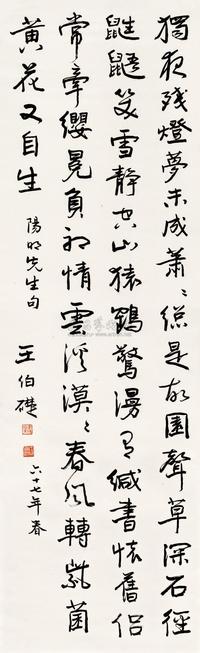 獨夜殘燈夢未成蕭〻總是故園聲草深石徑
鼪鼯笑雪靜空山猿鶴驚漫有緘書懷舊侶
常牽纓冕負初情雲溪漠〻春風轉紫菌
黃花又自生
陽明先生句
王伯礎
六十七年春